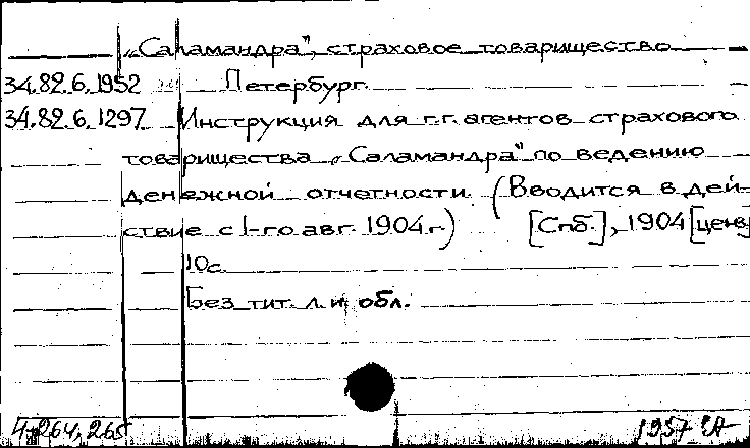 „Саламандра", страховое товарищество
34.82.6.1952 Петербург.
34.82.6.1297 Инструкция для г.г. агентов страхового
товарищества „Саламандра" по ведению
денежной отчетности. (Вводится в дей-
ствие с 1-го авг. 1904 г.) [Спб.], 1904 [ценз]
10с.
Без тит. л. и обл.
264, 265
1957